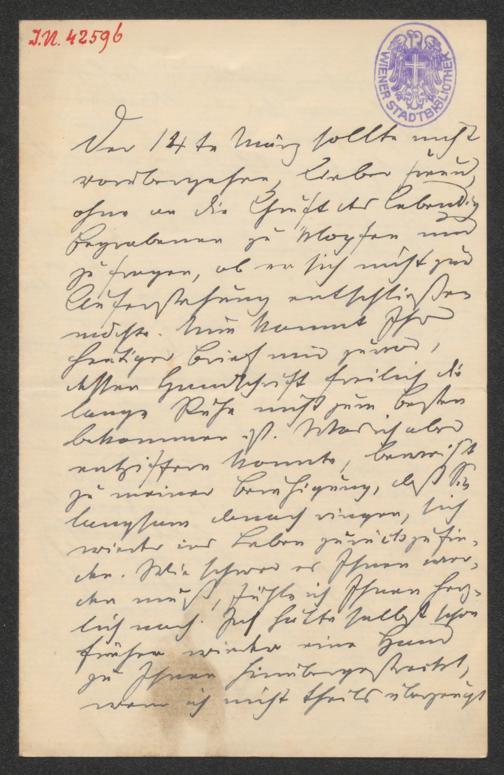 I.N. 42596
WIENER STADTBIBLIOTHEK
Der 14te März sollte nicht
vorübergehen, lieber Freund,
ohne an die Gruft des lebendig
Begrabenen zu klopfen und
zu fragen, ob er sich nicht zur
Auferstehung entschließen
möchte. Nun kommt Ihr
heutiger Brief mir zuvor,
dessen Handschrift freilich die
lange Ruhe nicht zum Besten
bekommen ist. Was ich aber
entziffern konnte, beweist
zu meiner Beruhigung, daß Sie
langsam danach ringen, sich
wieder ins Leben zurückzufin-
den. Wie schwer es Ihnen wer-
den muß, fühle ich Ihnen herz-
lich nach. Ich hätte selbst schon
früher wieder eine Hand
zu Ihnen hinübergestreckt,
wenn ich nicht theils überzeugt